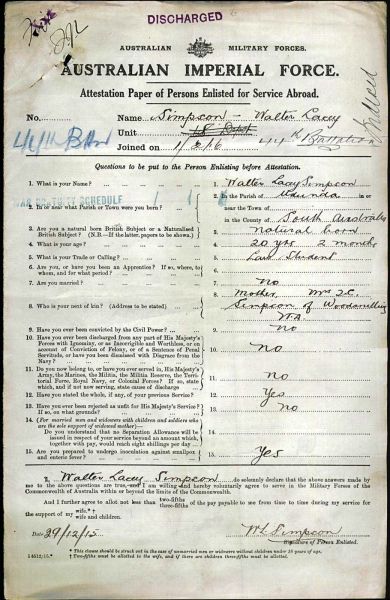 DISCHARGED
AUSTRALIAN MILITARY FORCES.
AUSTRALIAN IMPERIAL FORCE.
Attestation Paper of Persons Enlisted for Service Abroad.
No. Name Simpson - Walter Lacey
Unit 18 Depot
44th Battalion
Joined on 1/2/16
Questions to be put to the Person Enlisting before Attestation.
1. What is your Name? 1. Walter Lacey Simpson
2. In or near what Parish or Town were you born? 2. In the Parish of in or
near the Town of
in the County of South Australia
3. Are you a natural born British Subject or a Naturalised British Subject? (N.B.—If the latter, papers to be shown.) 3. natural born
4. What is your age? 4. 20 yrs 2 months
5. What is your Trade or Calling? 5. Law Student
6. Are you, or have you been an Apprentice? If so, where, to whom, and for what period? 6.
7. Are you married? 7. no
8. Who is your next of kin? (Address to be stated) 8. Mother, Mrs
Simpson of
W.A.
9. Have you ever been convicted by the Civil Power? 9. no
10. Have you ever been discharged from any part of His Majesty's Forces with Ignominy, or as Incorrigible and Worthless, or on account of Conviction of Felony, or of a Sentence of Penal Servitude, or have you been dismissed with Disgrace from the Navy? 10. no
11. Do you now belong to, or have you ever served in, His Majesty's Army, the Marines, the Militia, the Militia Reserve, the Territorial Force, Royal Navy, or Colonial Forces? If so, state which, and if not now serving, state cause of discharge 11. no
12. Have you stated the whole, if any, of your previous Service? 12. Yes
13. Have you ever been rejected as unfit for His Majesty's Service? If so, on what grounds? 13. no
14. (For married men and widowers with children and soldiers who are the sole support of widowed mother)—
Do you understand that no Separation Allowance will be issued in respect of your service beyond an amount which, together with pay, would reach eight shillings per day 14.
15. Are you prepared to undergo inoculation against smallpox and enteric fever? 15. Yes
I, Walter Lacey Simpson do solemnly declare that the above answers made by me to the above questions are true, and I am willing and hereby voluntarily agree to serve in the Military Forces of the Commonwealth of Australia within or beyond the limits of the Commonwealth.
And I further agree to allot not less than two-fifths three-fifths of the pay payable to me from time to time during my service for the support of my wife.*† wife and children.
Date 29/12/15 WL Simpson
Signature of Person Enlisted.
* This clause should be struck out in the case of unmarried men or widowers without children under 18 years of age.
† Two-fifths must be allotted to the wife, and if there are children three-fifths must be allotted.